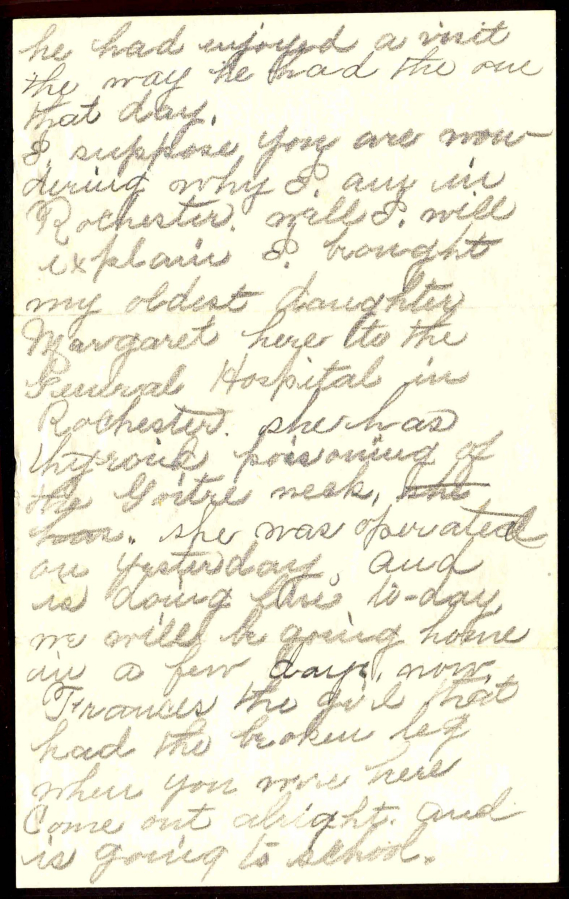 he had enjoyed a visit
the way he had the one
that day.
I. suppose you are won-
dering why I. am in
Rochester. will I. will
explain I. brought
my oldest daughter
Margaret here to the
General Hospital in
Rochester. she has
thyroid poisoning of
the Goitre neck, she
has. she was operated
on yesterday. and
is doing fine to-day,
we will be going home
in a few days, now.
Frances the girl that
had the broken leg
when you were here
Come out alright. and
is going to school.